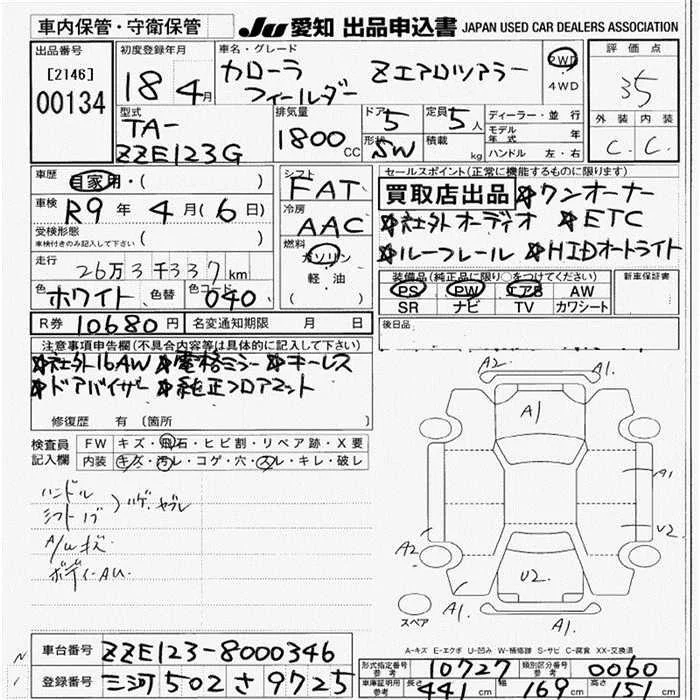 車内保管・守衛保管
JU 愛知 出品申込書 JAPAN USED CAR DEALERS ASSOCIATION
出品番号
[2146]
00134
初度登録年月
18 4月
車名・グレード
カローラ
フィールダー
Zエアロツアラー
2WD
4WD
評価点
35
外装 内装
C. C.
型式
TA-
ZZE123G
排気量
1800 CC
ドア
5
定員
5人
形状
SW
積載
kg
ディーラー・並行
モデル年式 年
ハンドル 左・右
車歴
自家用・( )
車検
R9年 4月(6日)
受検形態
車検付きのみ記入して下さい ( )
走行
26万3千337km
色
ホワイト
色替
色コード
040
シフト
FAT
冷房
AAC
燃料
ガソリン
軽油
( )
セールスポイント(正常に機能するものに限ります)
買取店出品 ✡ワンオーナー
✡社外オーディオ ✡ETC
✡ルーフレール ✡HIDオートライト
装備品(純正品に限り○をつけてください)
PS PW エアB AW
SR ナビ TV カワシート
新車保証書
後日品
R券 10680円
名変通知期限 月 日
注意事項申告欄(不具合内容等は具体的に記入して下さい)
✡社外16AW ✡電格ミラー ✡キーレス
✡ドアバイザー ✡純正フロアマット
修復歴 有 〔箇所 〕
検査員記入欄
FW キズ・飛石・ヒビ割・リペア跡・X要
内装 キズ・汚レ・コゲ・穴・スレ・キレ・破レ
ハンドル
シフトノブ
A/Wキズ
ボディーAU.
A2 A1.
A1
A1
A2 U2
U2
A1. A1.
A1.
スペア
A-キズ E-エクボ U-凹み W-補修跡 S-サビ C-腐食 XX-交換済
車台番号 ZZE123-8000346
登録番号 三河502さ9725
形式指定番号 参考 10727
類別区分番号 参考 0060
車庫証明用 参考 長さ 441cm 幅 169cm 高さ 151cm